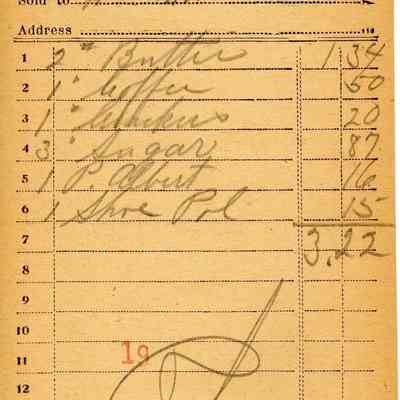 Sold to
Address
1 2" Butter 1 34
2 1" Coffee 50
3 1" Crackers 20
4 3" Sugar 87
5 1 P. Albert 16
6 1 Shoe Pol 15
7 3.22
8
9
10
11 19
12